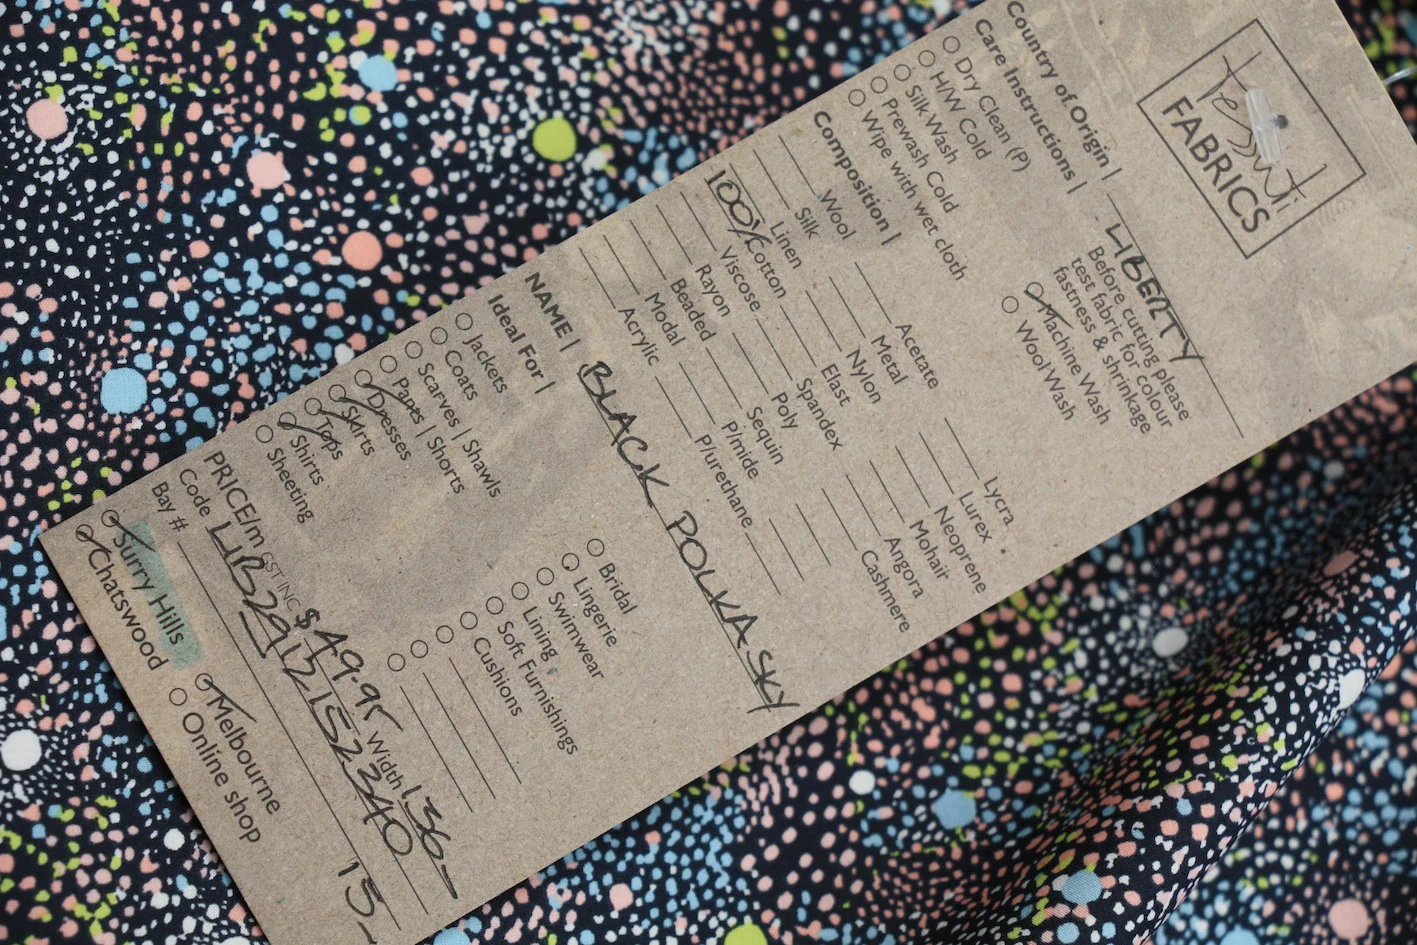 Tessuti
FABRICS
Country of Origin | LIBERTY
Care Instructions | Before cutting please
test fabric for colour
fastness & shrinkage
Dry Clean (P) Machine Wash
H/W Cold Wool Wash
Silk Wash
Prewash Cold
Wipe with wet cloth
Composition |
Wool Acetate Lycra
Silk Metal Lurex
Linen Nylon Neoprene
100% Cotton Elast Mohair
Viscose Spandex Angora
Rayon Poly Cashmere
Beaded Sequin
Modal P/mide
Acrylic P/urethane
NAME | BLACK POLKA SKY
Ideal For |
Jackets Bridal
Coats Lingerie
Scarves | Shawls Swimwear
Pants | Shorts Lining
Dresses Soft Furnishings
Skirts Cushions
Tops
Shirts
Sheeting
PRICE/m GST INC $49.95 Width 136
Code LIB2912152340
Bay # 15
Surry Hills Melbourne
Chatswood Online shop